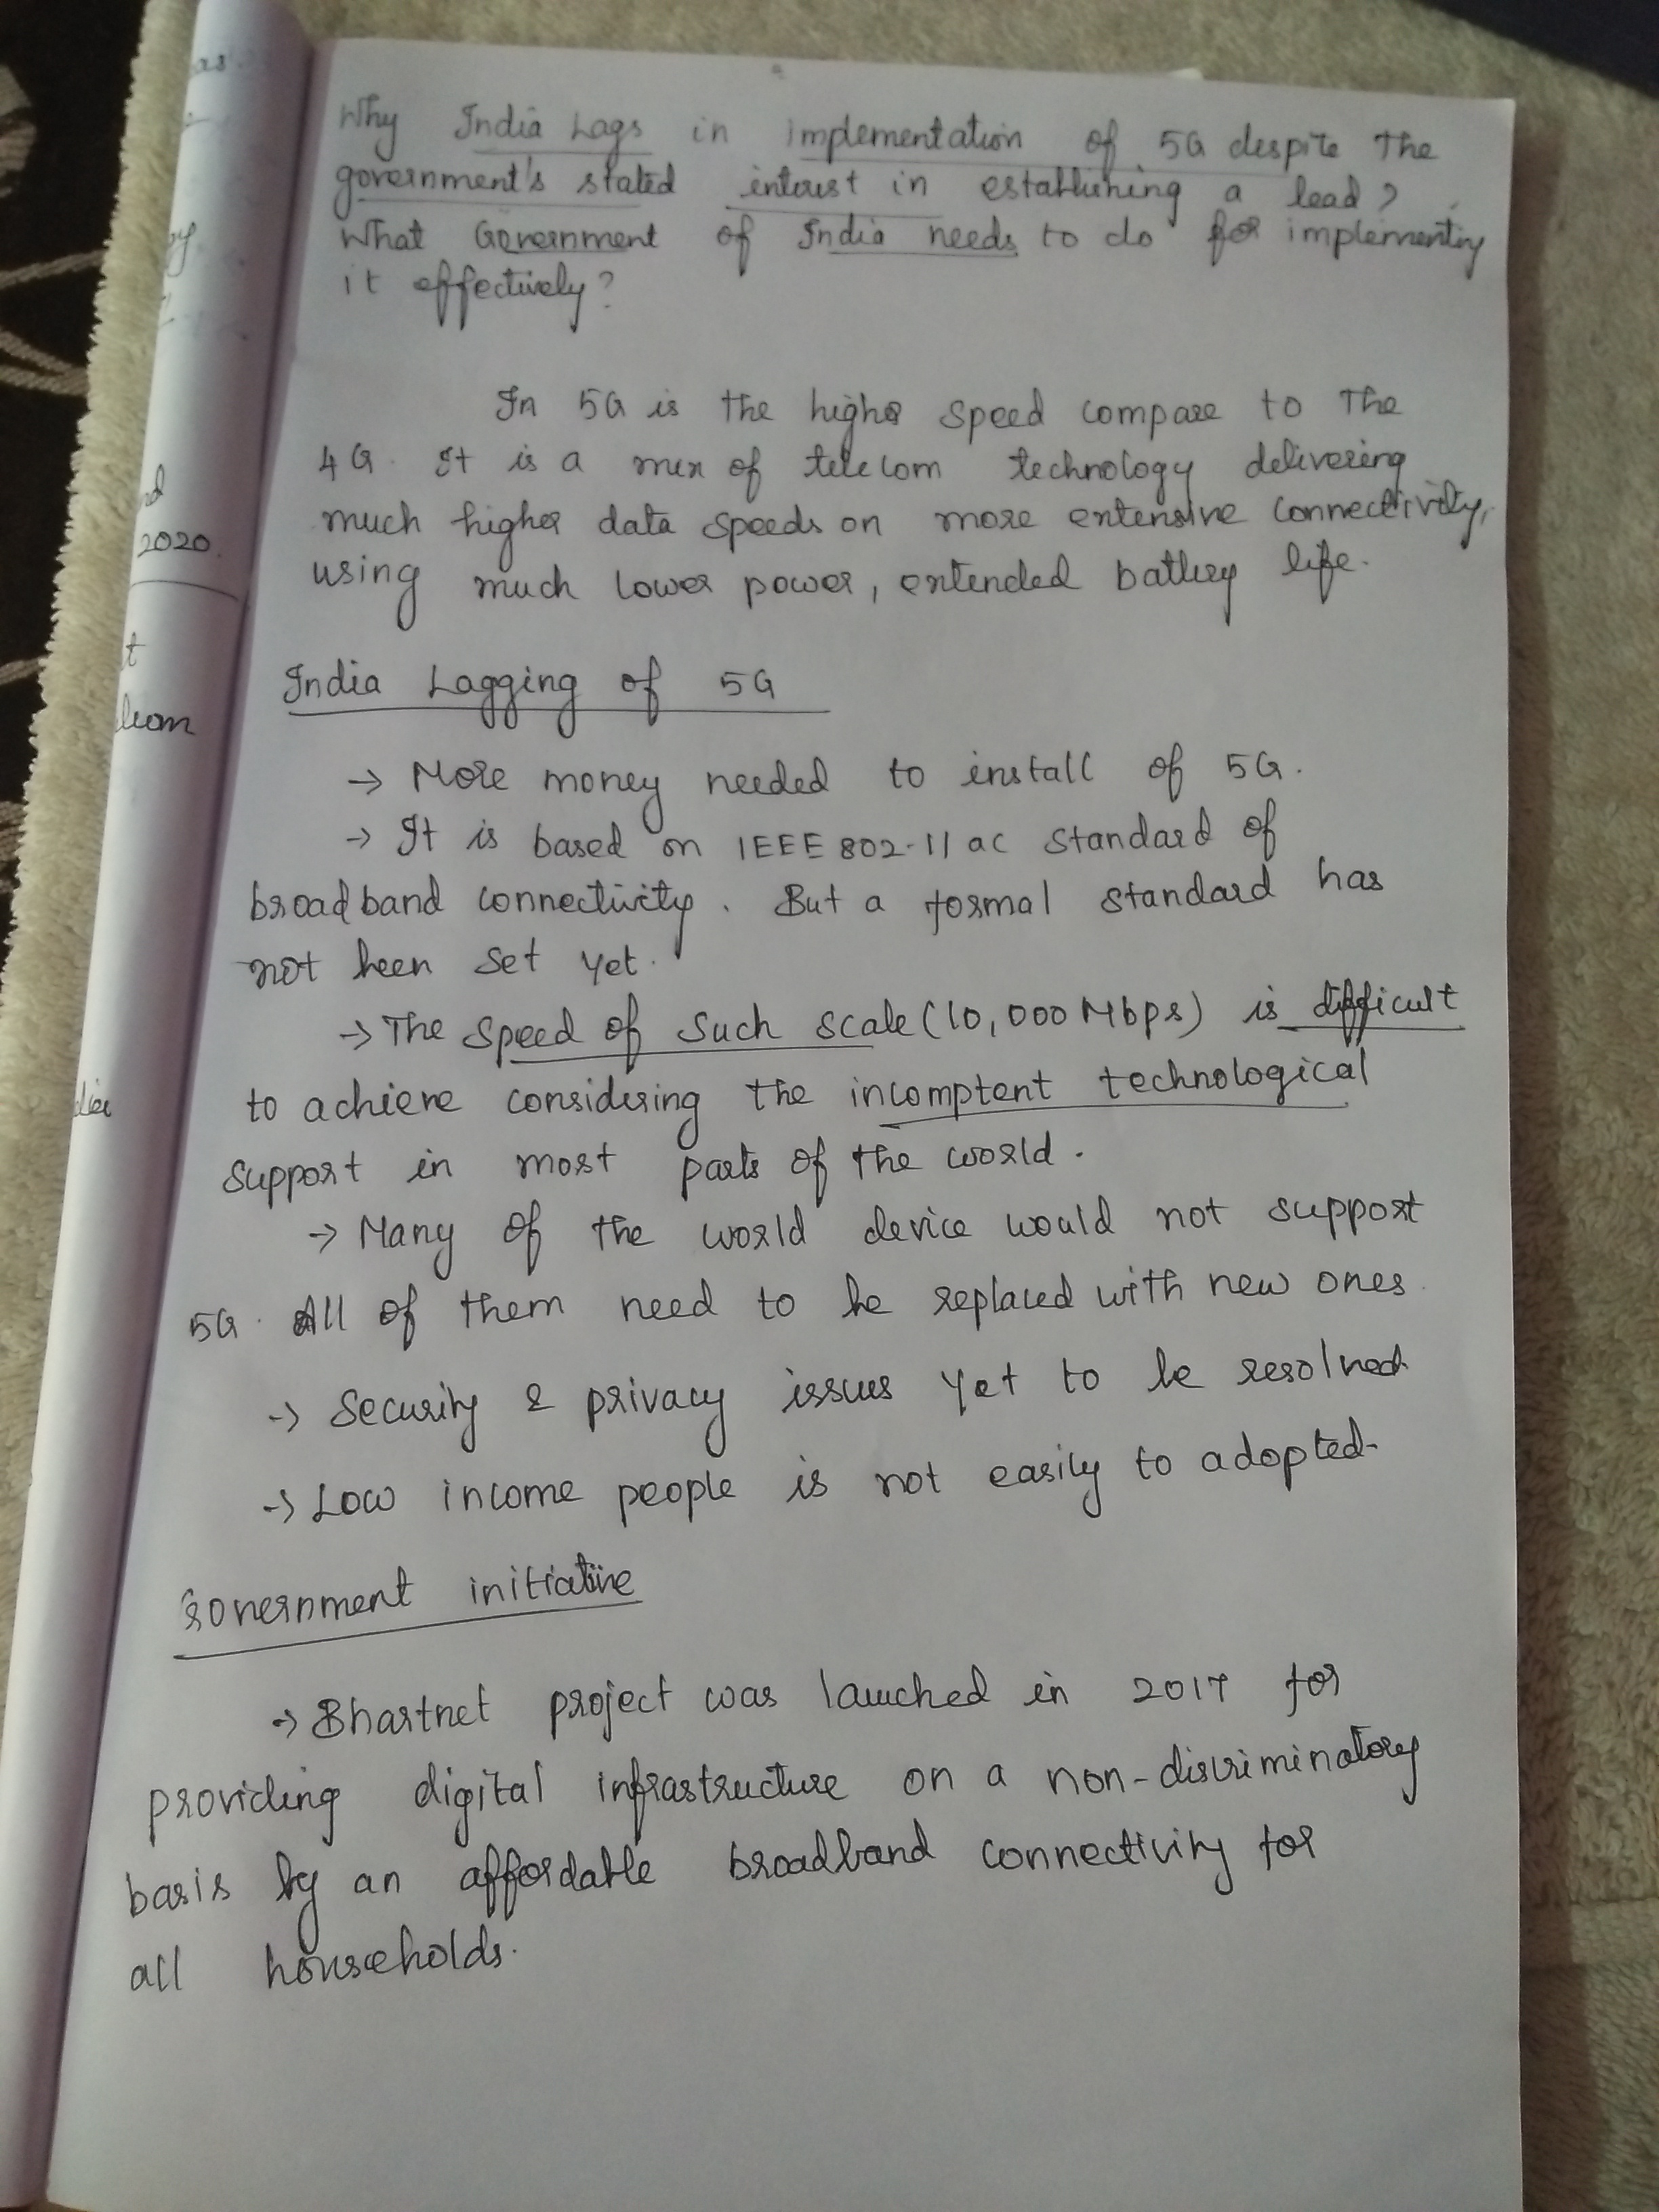 Why India Lags in implementation of 5G despite the
government's stated interest in establishing a lead?
What Government of India needs to do for implementing
it effectively?
In 5G is the higher speed compare to the
4G. It is a mix of telecom technology delivering
much higher data speeds on more extensive connectivity,
using much lower power, extended battery life.
India Lagging of 5G
→ More money needed to install of 5G.
→ It is based on IEEE 802.11 ac standard of
broadband connectivity. But a formal standard has
not been set yet.
→ The speed of such scale (10,000 Mbps) is difficult
to achieve considering the incomptent technological
support in most parts of the world.
→ Many of the world device would not support
5G. All of them need to be replaced with new ones.
→ Security & privacy issues yet to be resolved.
→ Low income people is not easily to adopted.
Government initiative
→ Bhartnet project was lauched in 2017 for
providing digital infrastructure on a non-discriminatory
basis by an affordable broadband connectivity for
all households.
as.
2020.